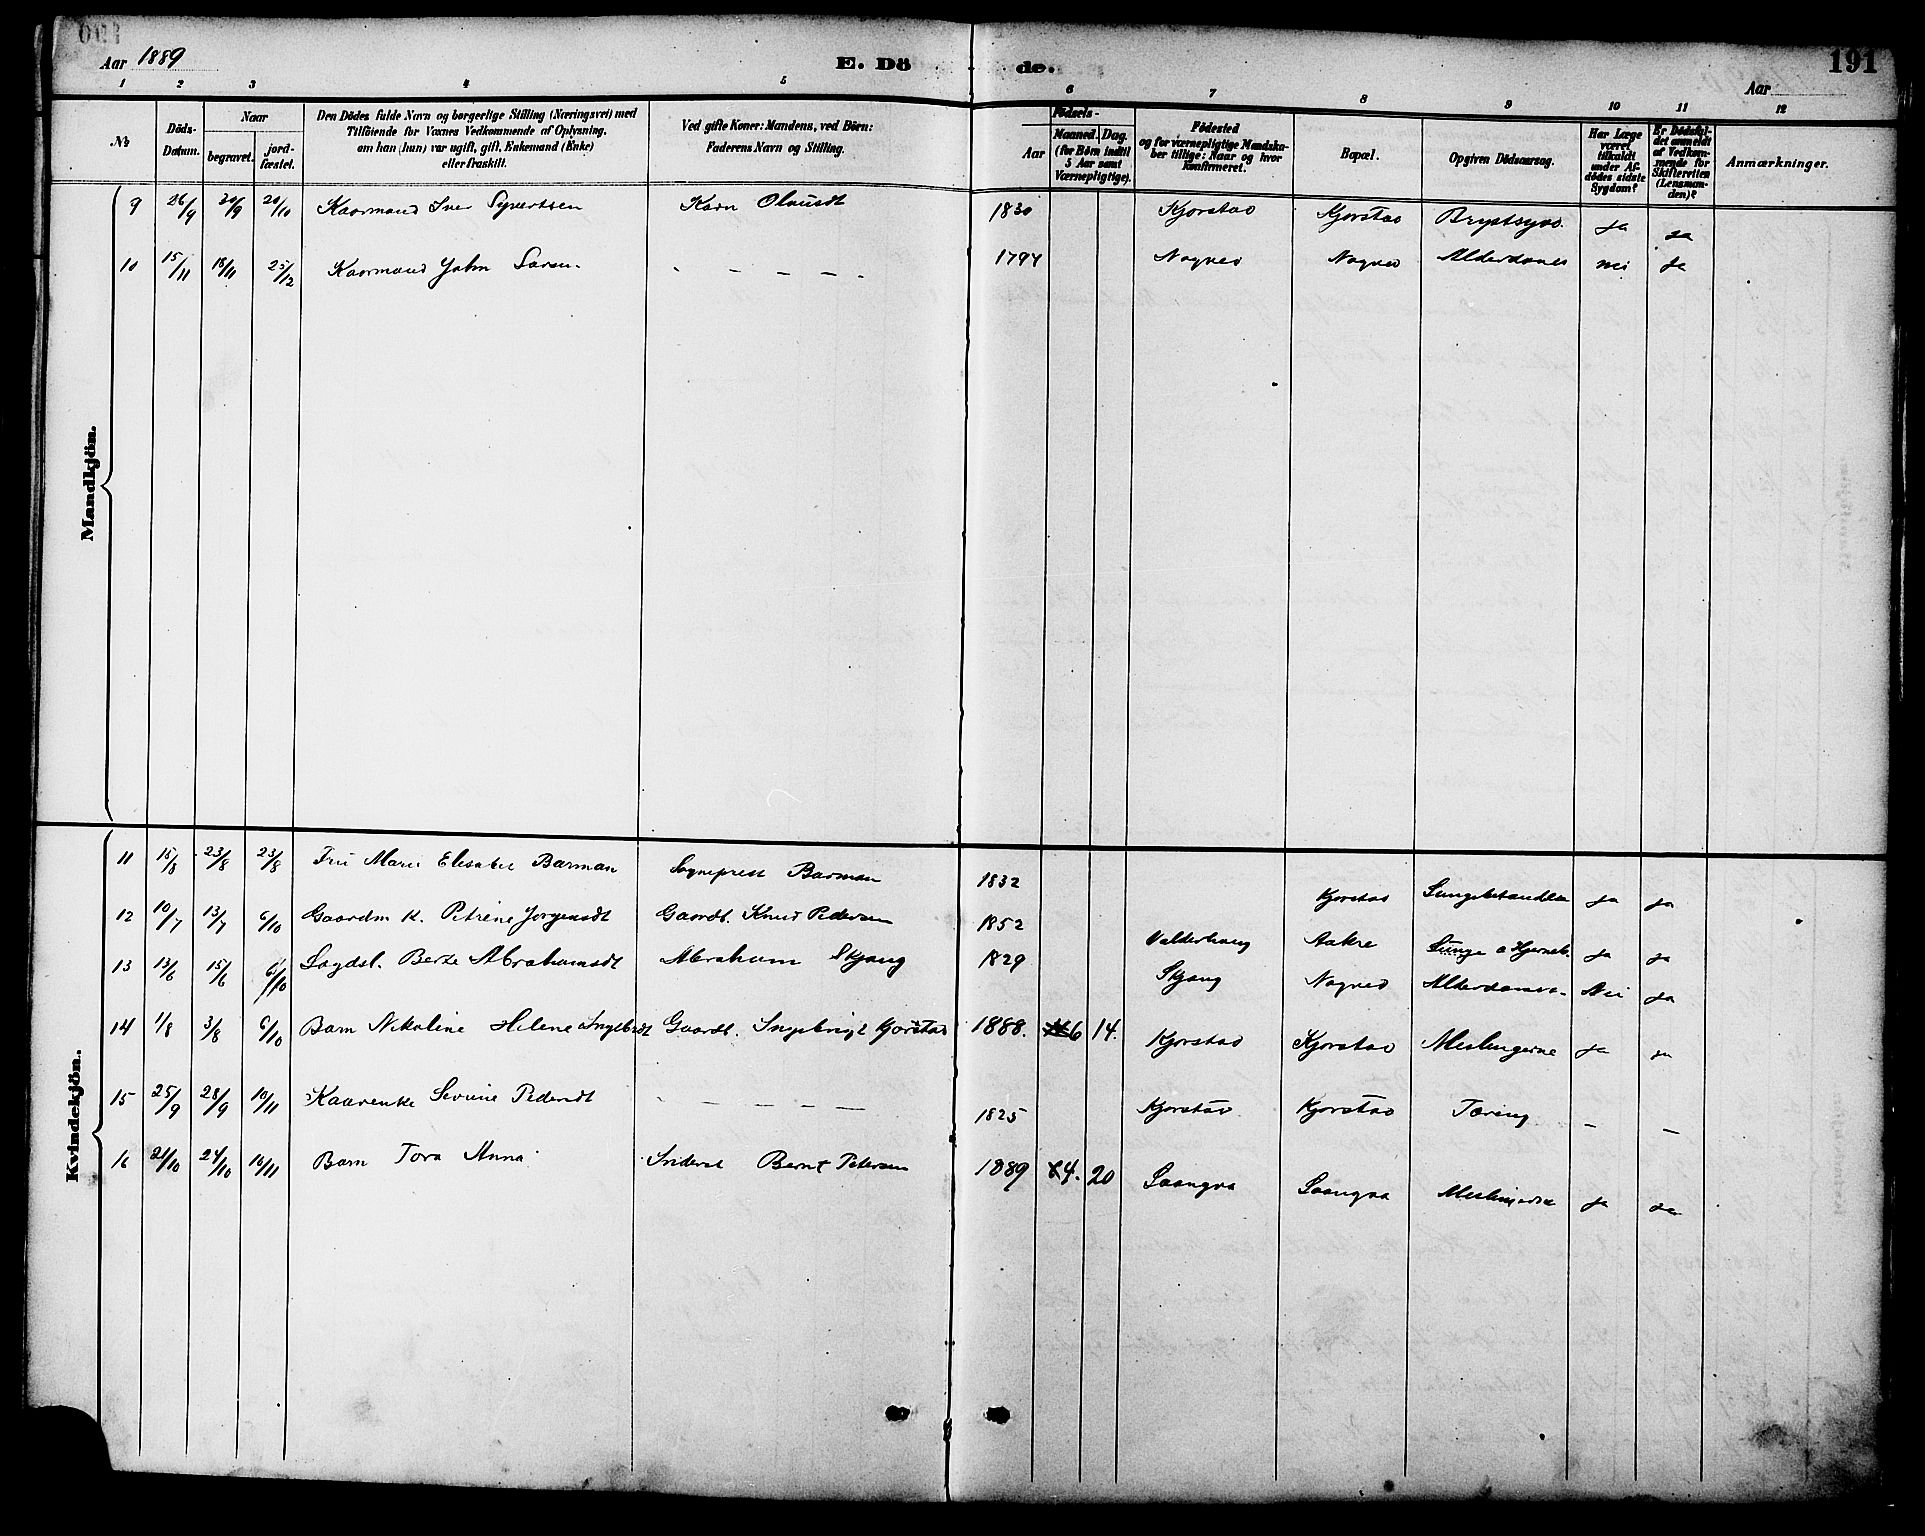 Aar 1889 E. Döde. 191
Aar
1 2 3 4 5 6 7 8 9 10 11 12
№ Döds-Datum. Naar begravet. jord-fæstet. Den Dödes fulde Navn og borgerlige Stilling (Næringsvei) med Tilföiende for Voxnes Vedkommende af Oplysning, om han (hun) var ugift, gift, Enkemand (Enke) eller fraskilt. Ved gifte Koner: Mandens, ved Börn: Faderens Navn og Stilling. Födsels- Aar Maaned. Dag. (for Börn indtil 5 Aar samt Værnepligtige). Födested og for værnepligtige Mandskaber tillige: Naar og hvor Konfirmeret. Bopæl. Opgiven Dödsaarsag. Har Læge været tilkaldt under Afdödes sidste Sygdom? Er Dödsfaldet anmeldt af Vedkommende for Skifteretten (Lensmanden)? Anmærkninger.
Mandkjön.
9 26/9 30/9 20/10 Kaarmand Iver Syvertsen Karn Olausdt 1830 Kjorstad Kjorstad Brystsyg. ja ja
10 15/11 18/11 25/12 Kaarmand John Larsen - - - - - 1794 Nogved Nogved Alderdoms nei ja
Kvindekjön.
11 15/8 23/8 23/8 Fru Marie Elesabet Barman Sogneprest Barman 1832 Kjorstad ja ja
12 10/7 13/7 6/10 Gaardm k. Petrine Jorgensdt Gaardbr. Knud Pedersen 1852 Valderhaug Aakre Lunge o Hjerneb. ja ja
13 13/6 15/6 6/10 Berte Abrahamsdt Abraham Skjang 1829 Skjang Nogved Alderdomssv. Nei ja
14 1/8 3/8 6/10 Barn Nikoline Helene Ingebrdt Gaardbr. Ingebrigt Kjorstad 1888. 6 14. Kjorstad Kjorstad Meslingerne ja ja
15 25/9 28/9 10/11 Kaarenke Sevrine Pedersdt - - - - - 1825 Kjorstad Kjorstad Tæring - -
16 21/10 24/10 10/11 Barn Tora Anna Bernt Petersen 1889 4. 20 Saangva Saangva Meslingerne ja ja